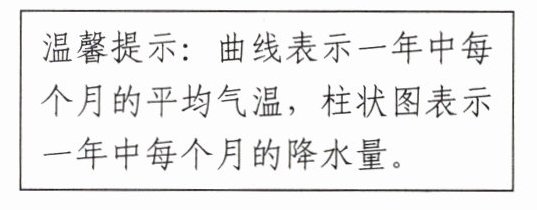 温馨提示：曲线表示一年中每
个月的平均气温，柱状图表示
一年中每个月的降水量。